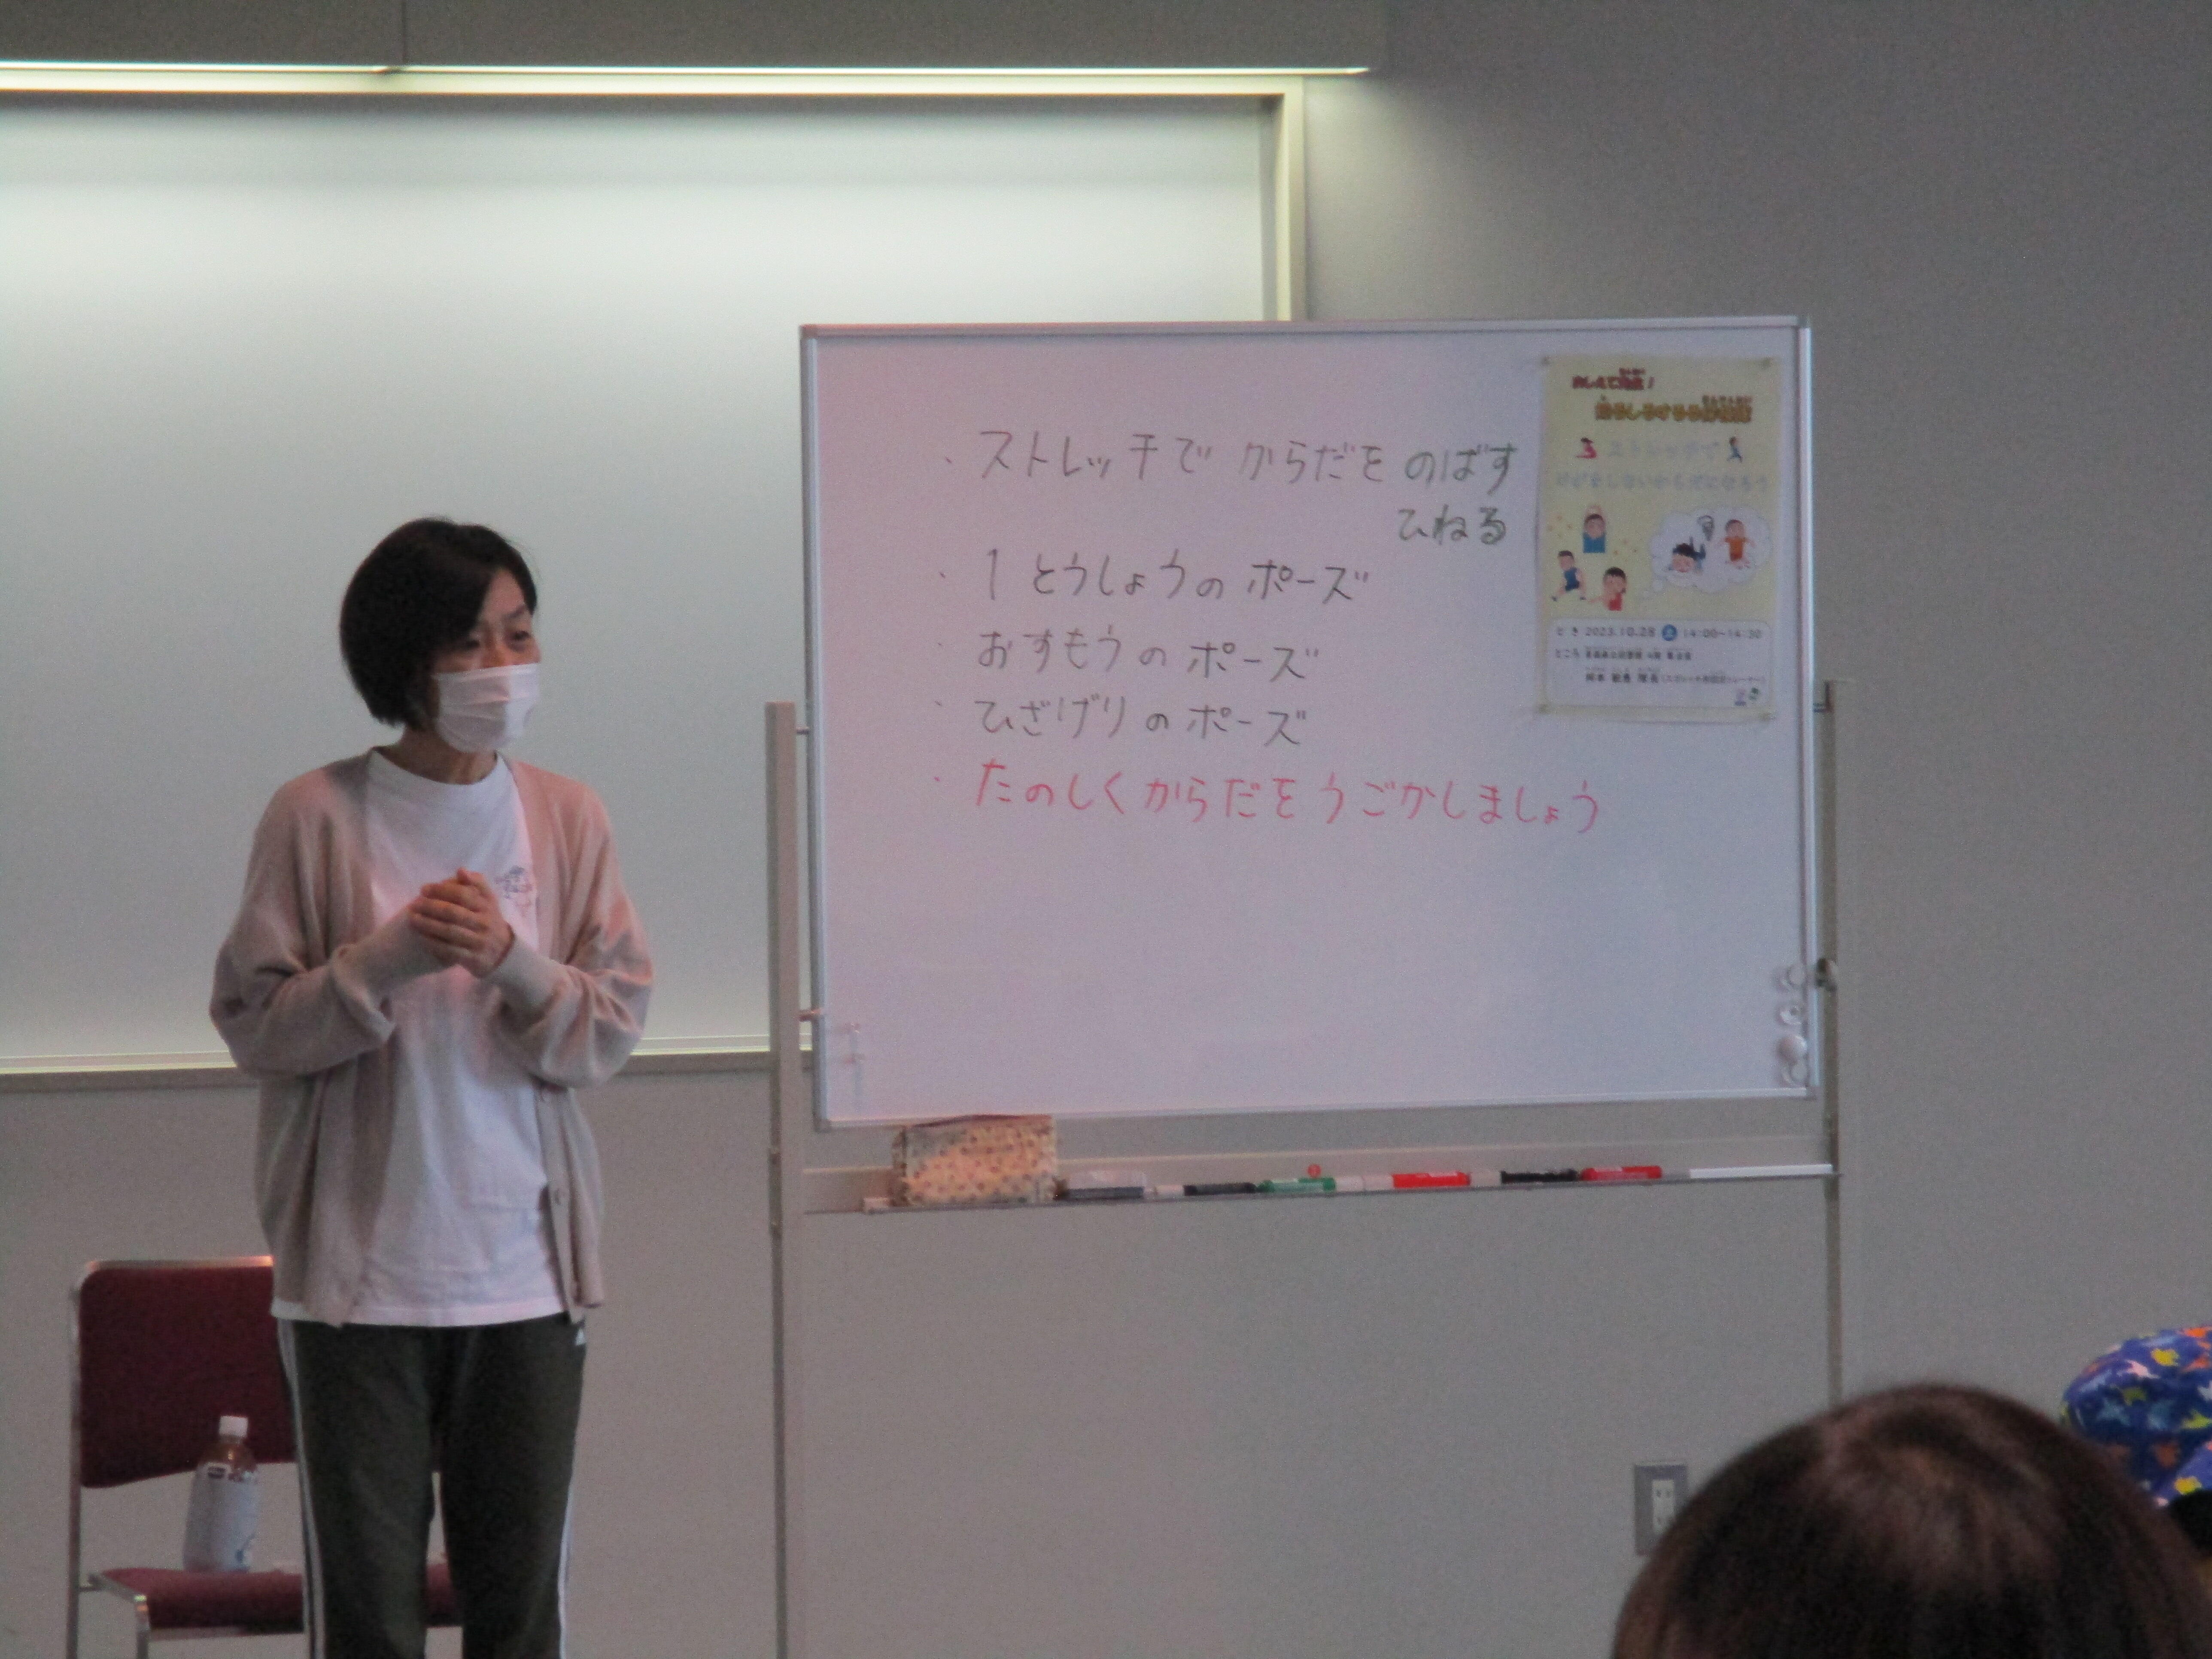 ・ストレッチで からだを のばす
ひねる
・1とうしょうのポーズ
・おすもうのポーズ
・ひざげりのポーズ
・たのしくからだをうごかしましょう
おしえて！
ストレッチで
けがをしないからだになろう
とき 2023.10.28 土 14:00~14:30
ところ